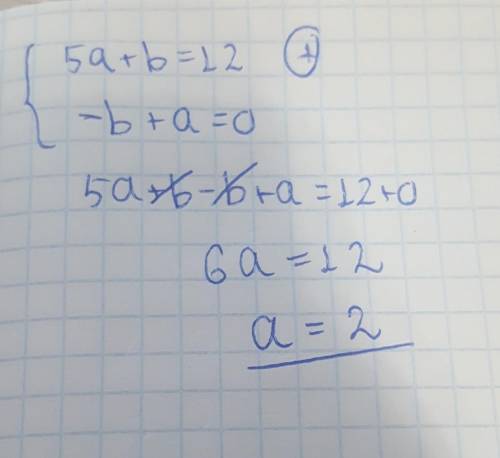 5a+b=12 (+)
-b+a=0
5a+b-b+a=12+0
6a=12
a=2